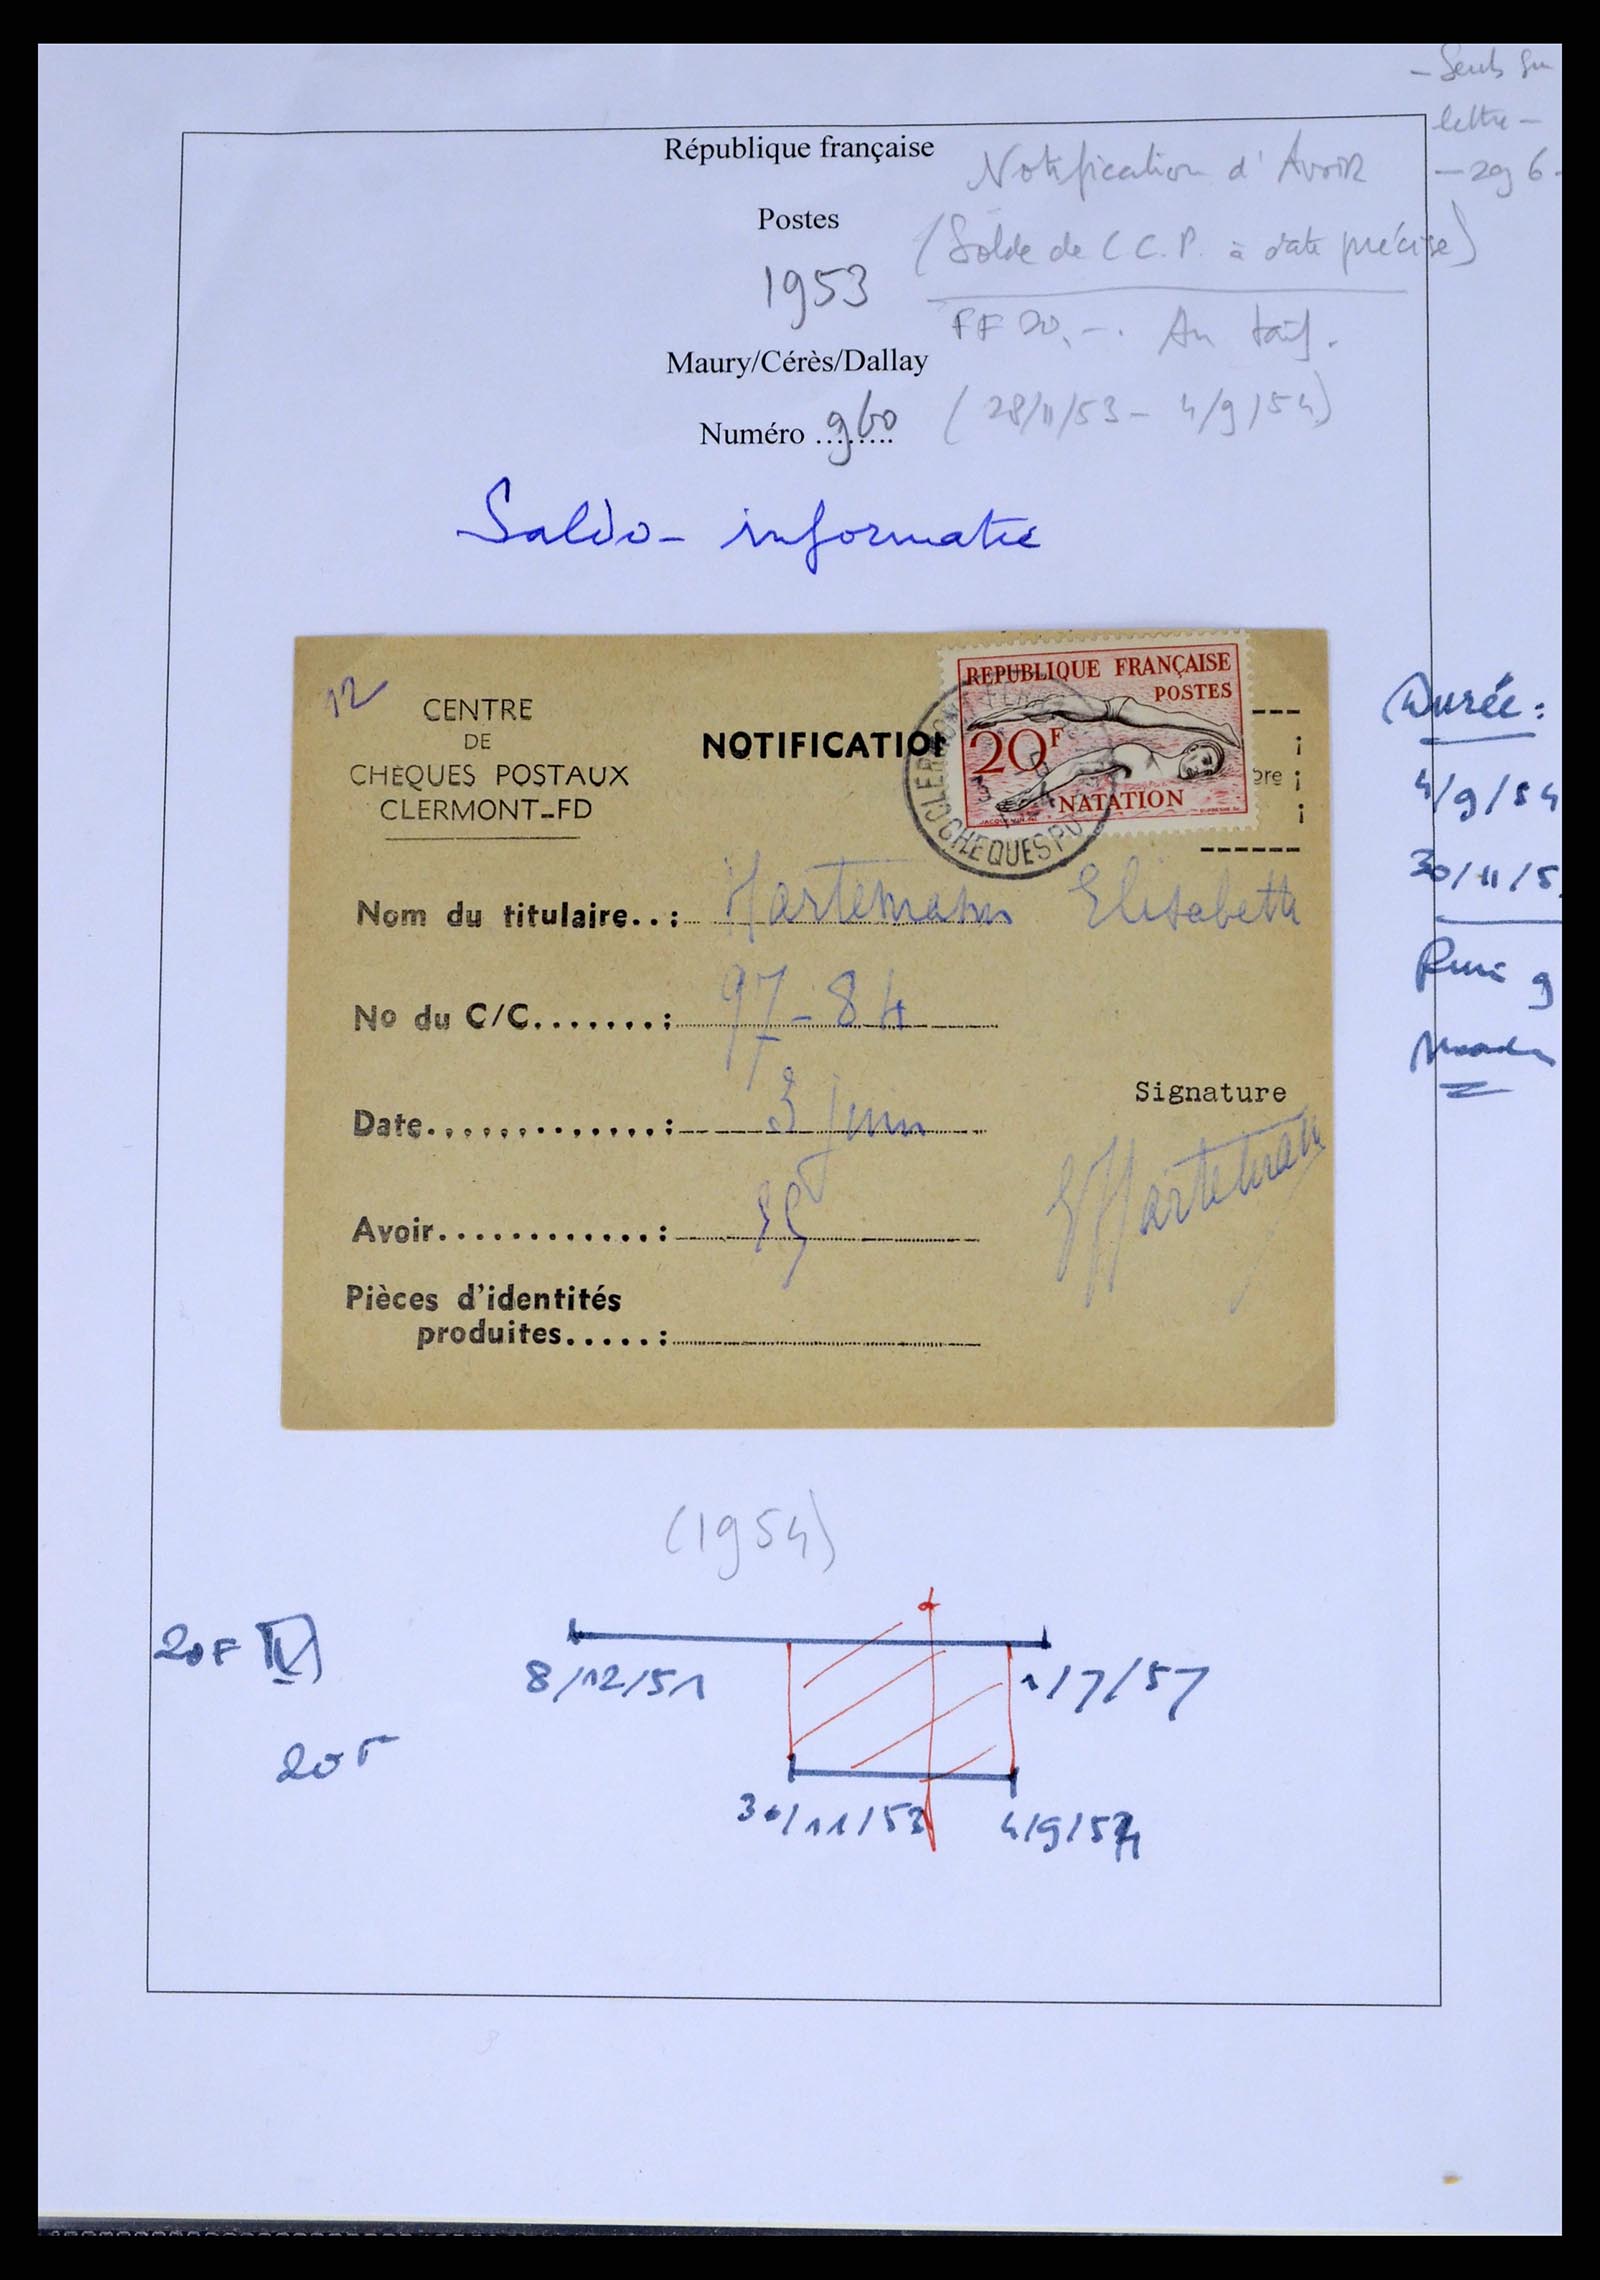 – Seuls sur
lettre –
République française
Notification d'Avoir
Postes
(Solde de C.C.P. à date précise)
1953
FF 20,–. Au tarif.
Maury/Cérès/Dallay
Numéro ........ 960
(28/11/53 – 4/9/54)
Saldo- informatie
12
CENTRE
DE
CHÈQUES POSTAUX
CLERMONT-FD
NOTIFICATION
REPUBLIQUE FRANÇAISE
POSTES
20F
NATATION
CHEQUES
bre
Nom du titulaire..: Hartemann Elisabeth
No du C/C.......: 97-84
Date.............: 3 juin
Signature
Hartemann
Avoir............:
Pièces d'identités
produites.....:
Durée:
4/9/54
30/11/5
9
(1954)
20F
8/12/51
1/7/57
20F
30/11/53
4/9/54